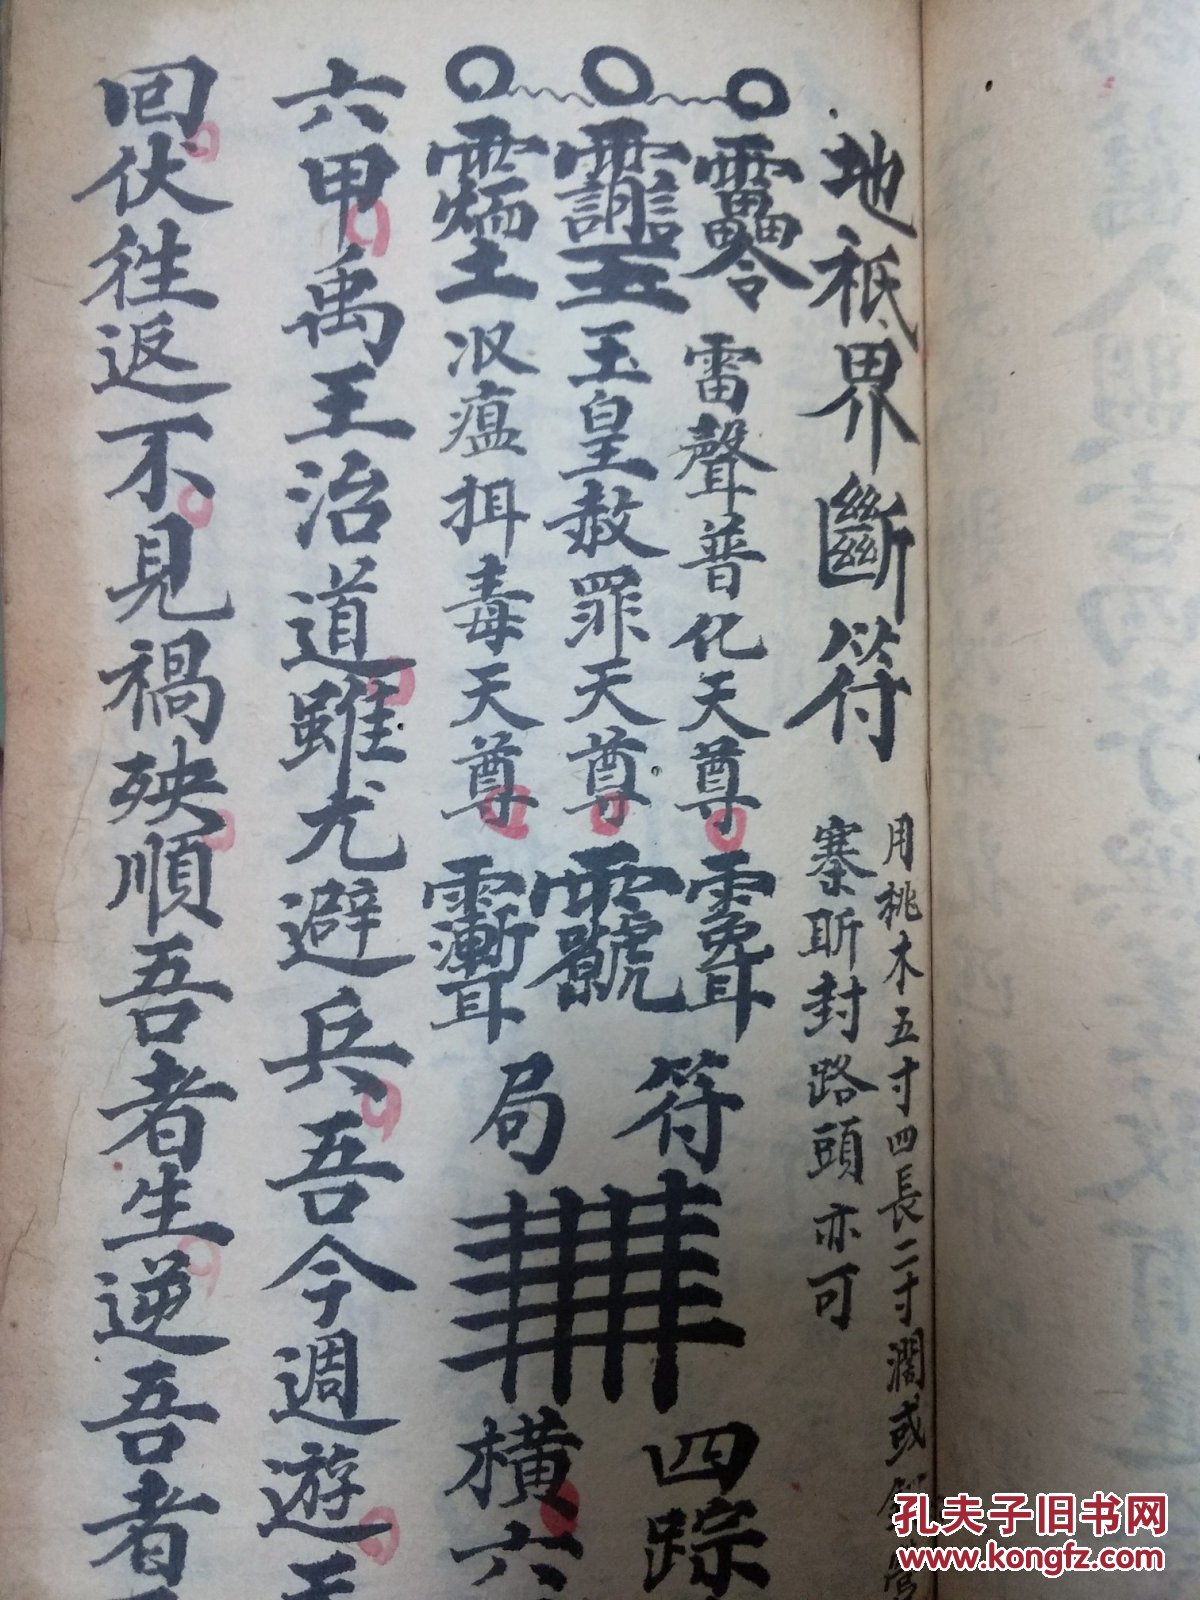 地祇界斷符
用桃木五寸四長二寸濶或
寨斷封路頭亦可
雷聲普化天尊
符
四踪
玉皇赦罪天尊
收瘟押毒天尊
局
橫六
六甲禹王治道雖尤避兵吾今週遊
回伏往返不見禍殃順吾者生逆吾者
孔夫子旧书网
www.kongfz.com